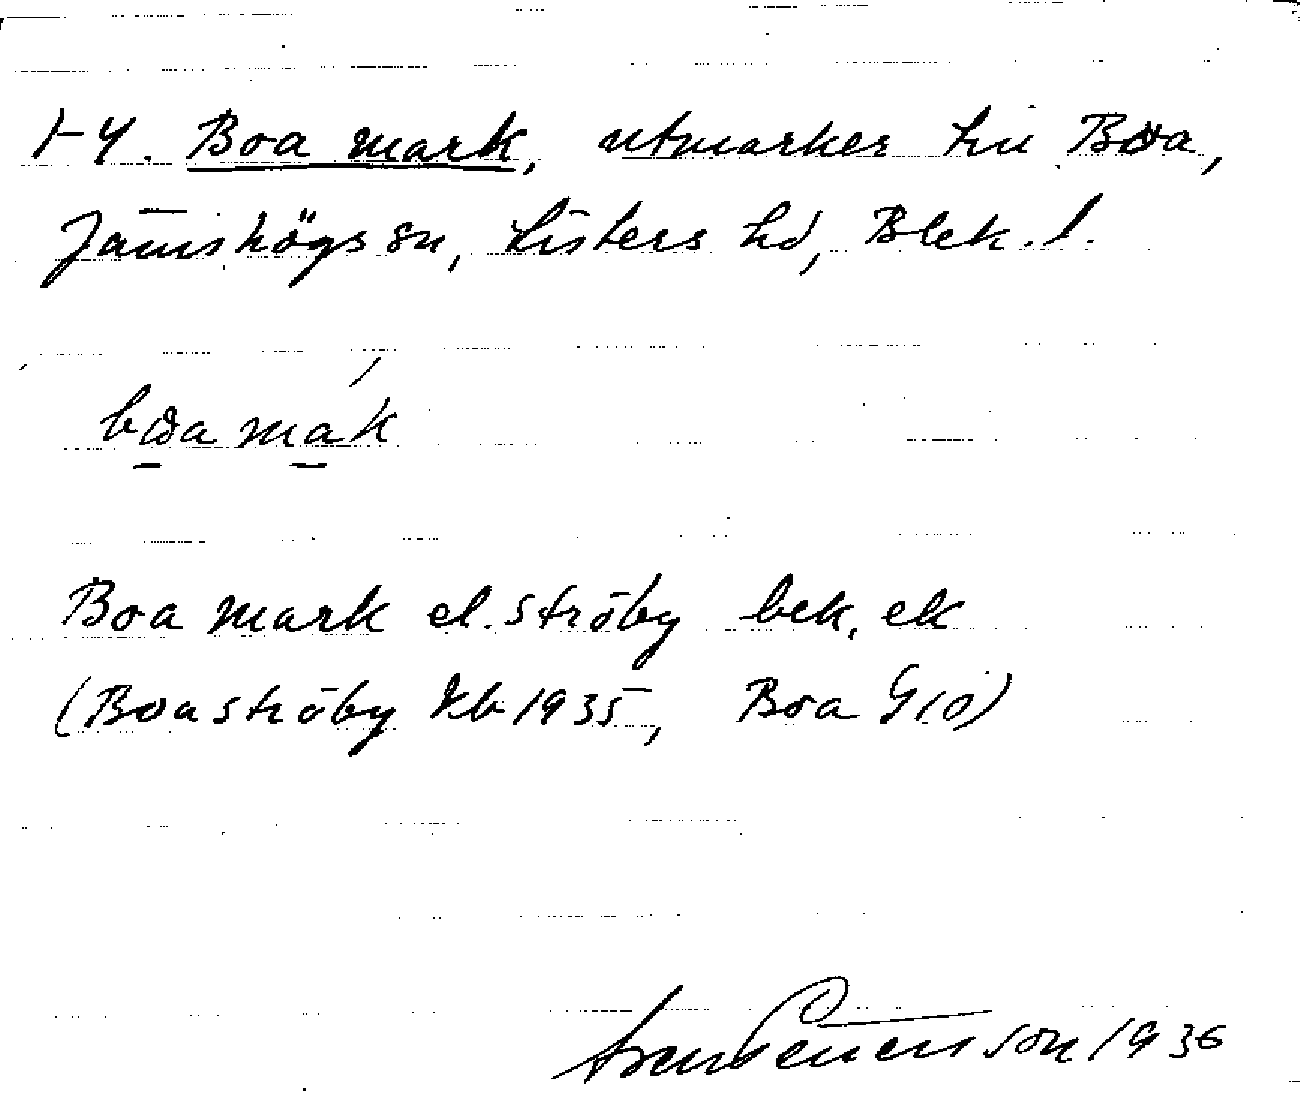 1-4. Boa mark, utmarker till Boa,
Jämshögs sn, Listers hd, Blek. l.
Boa mark el. ströby bek, ek
(Boaströby Kb 1935, Boa G(ö)
1936